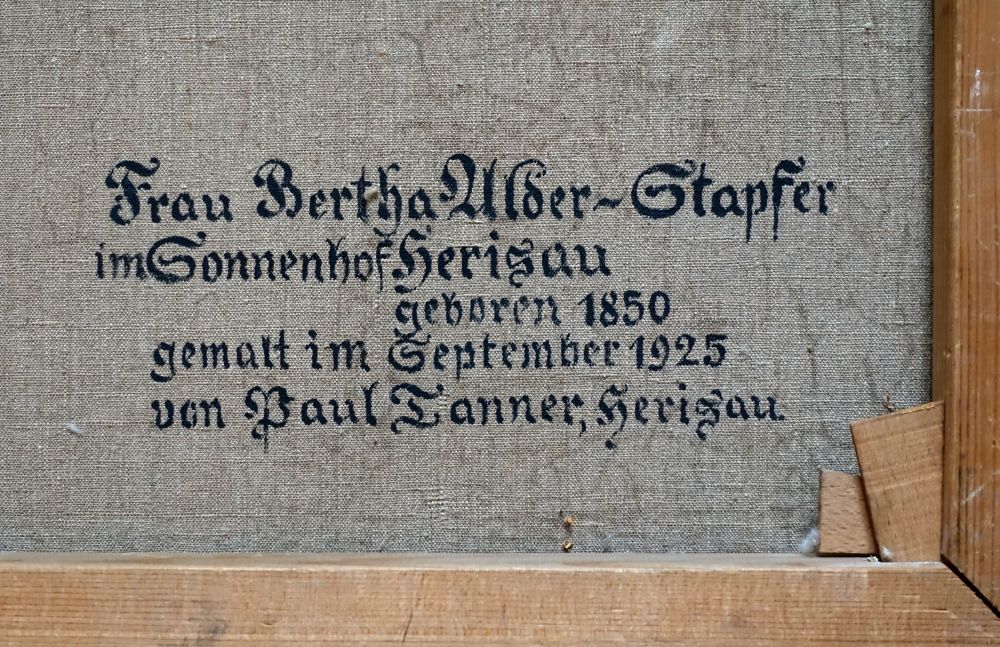 Frau Bertha Alder-Stapfer
im Sonnenhof Herisau
geboren 1850
gemalt im September 1925
von Paul Tanner, Herisau.